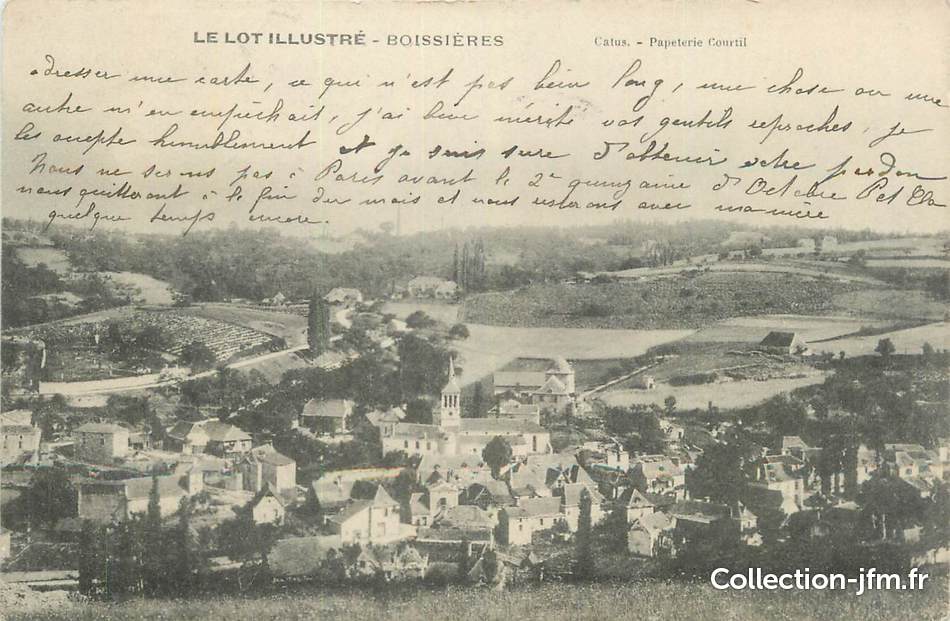 LE LOT ILLUSTRÉ - BOISSIÈRES
Catus. - Papeterie Courtil
adresser une carte, ce qui n'est pas bien long, une chose ou une
autre m'en empêchait, j'ai bien mérité vos gentils reproches, je
les accepte humblement et je suis sure d'obtenir votre pardon
Nous ne serons pas à Paris avant la 2e quinzaine d'Octobre
nous quitteront à la fin du mois et nous resterons avec ma mère
quelque temps encore.
Collection-jfm.fr